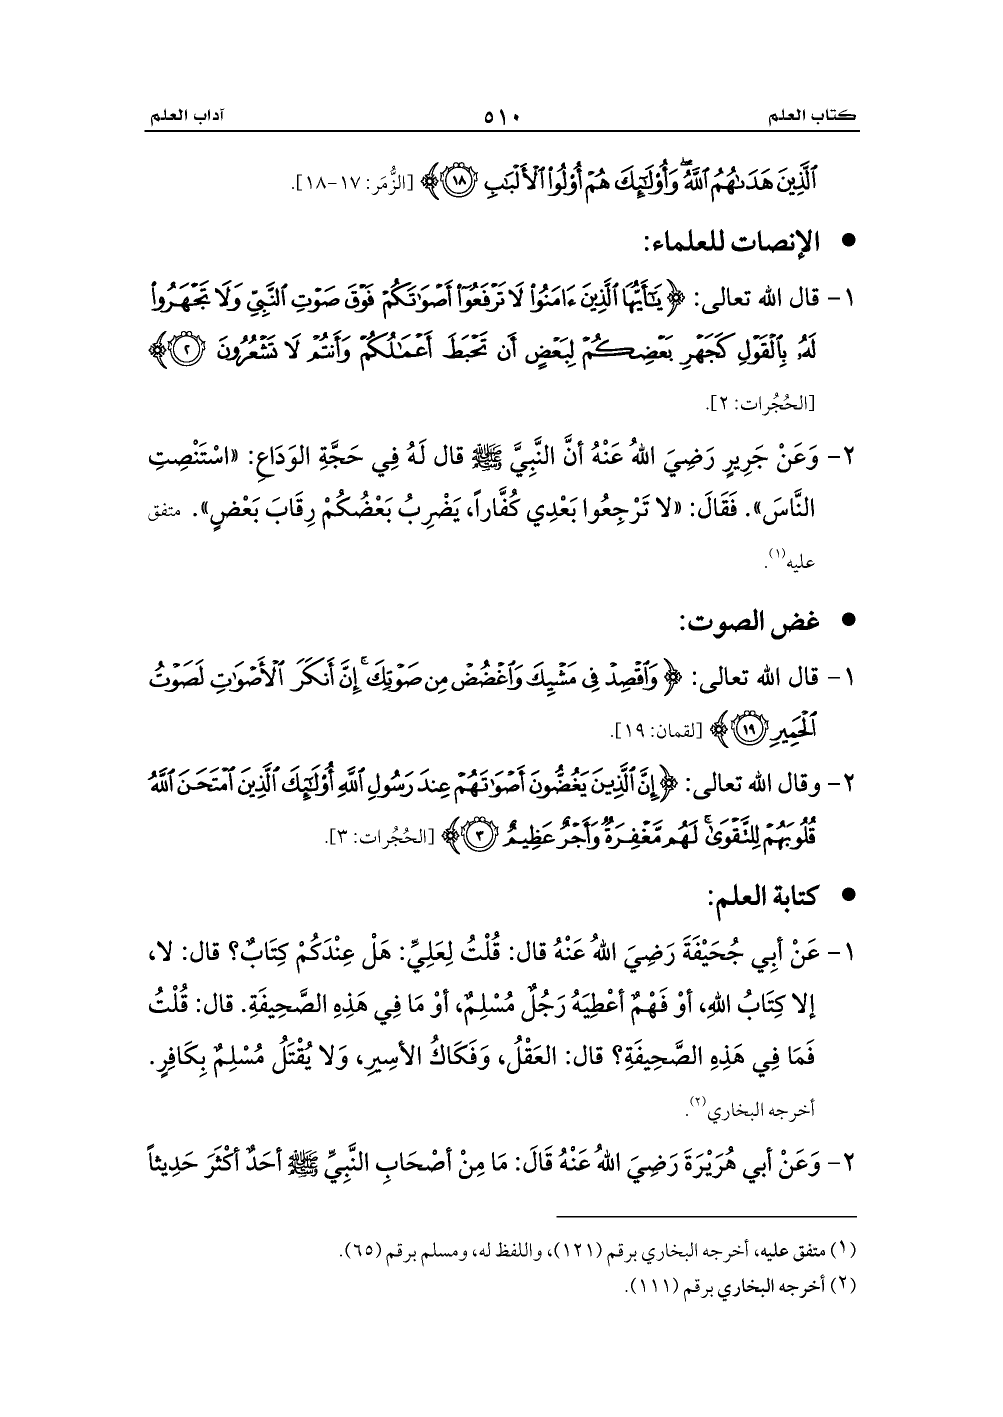 كتاب العلم ٥١٠ آداب العلم
ٱلَّذِينَ هَدَىٰهُمُ ٱللَّهُ ۖ وَأُوْلَٰٓئِكَ هُمْ أُوْلُواْ ٱلْأَلْبَٰبِ ١٨﴾ [الزُّمَر: ١٧-١٨].
● الإنصات للعلماء:
١- قال الله تعالى: ﴿يَٰٓأَيُّهَا ٱلَّذِينَ ءَامَنُواْ لَا تَرْفَعُوٓاْ أَصْوَٰتَكُمْ فَوْقَ صَوْتِ ٱلنَّبِيِّ وَلَا تَجْهَرُواْ
لَهُۥ بِٱلْقَوْلِ كَجَهْرِ بَعْضِكُمْ لِبَعْضٍ أَن تَحْبَطَ أَعْمَٰلُكُمْ وَأَنتُمْ لَا تَشْعُرُونَ ٢﴾
[الحُجُرات: ٢].
٢- وَعَنْ جَرِيرٍ رَضِيَ اللهُ عَنْهُ أنَّ النَّبِيَّ ﷺ قال لَهُ فِي حَجَّةِ الوَدَاعِ: «اسْتَنْصِتِ
النَّاسَ». فَقَالَ: «لا تَرْجِعُوا بَعْدِي كُفَّاراً، يَضْرِبُ بَعْضُكُمْ رِقَابَ بَعْضٍ». متفق
عليه(١).
● غض الصوت:
١- قال الله تعالى: ﴿وَٱقْصِدْ فِي مَشْيِكَ وَٱغْضُضْ مِن صَوْتِكَ ۚ إِنَّ أَنكَرَ ٱلْأَصْوَٰتِ لَصَوْتُ
ٱلْحَمِيرِ ١٩﴾ [لقمان: ١٩].
٢- وقال الله تعالى: ﴿إِنَّ ٱلَّذِينَ يَغُضُّونَ أَصْوَٰتَهُمْ عِندَ رَسُولِ ٱللَّهِ أُوْلَٰٓئِكَ ٱلَّذِينَ ٱمْتَحَنَ ٱللَّهُ
قُلُوبَهُمْ لِلتَّقْوَىٰ ۚ لَهُم مَّغْفِرَةٌ وَأَجْرٌ عَظِيمٌ ٣﴾ [الحُجُرات: ٣].
● كتابة العلم:
١- عَنْ أبِي جُحَيْفَةَ رَضِيَ اللهُ عَنْهُ قال: قُلْتُ لِعَلِيٍّ: هَلْ عِنْدَكُمْ كِتَابٌ؟ قال: لا،
إلا كِتَابُ اللهِ، أوْ فَهْمٌ أعْطِيَهُ رَجُلٌ مُسْلِمٌ، أوْ مَا فِي هَذِهِ الصَّحِيفَةِ. قال: قُلْتُ
فَمَا فِي هَذِهِ الصَّحِيفَةِ؟ قال: العَقْلُ، وَفَكَاكُ الأسِيرِ، وَلا يُقْتَلُ مُسْلِمٌ بِكَافِرٍ.
أخرجه البخاري(٢).
٢- وَعَنْ أبي هُرَيْرَةَ رَضِيَ اللهُ عَنْهُ قَالَ: مَا مِنْ أصْحَابِ النَّبِيِّ ﷺ أحَدٌ أكْثَرَ حَدِيثاً
(١) متفق عليه، أخرجه البخاري برقم (١٢١)، واللفظ له، ومسلم برقم (٦٥).
(٢) أخرجه البخاري برقم (١١١).